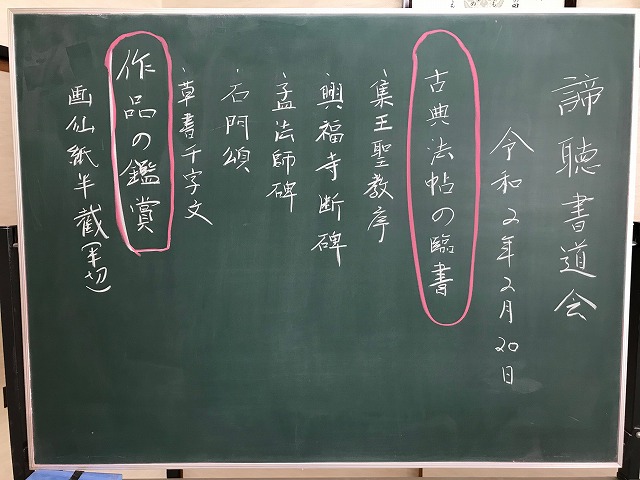 諦聴書道会
令和2年2月20日
古典法帖の臨書
・集王聖教序
・興福寺断碑
・孟法師碑
・石門頌
・草書千字文
作品の鑑賞
画仙紙半截(半切)